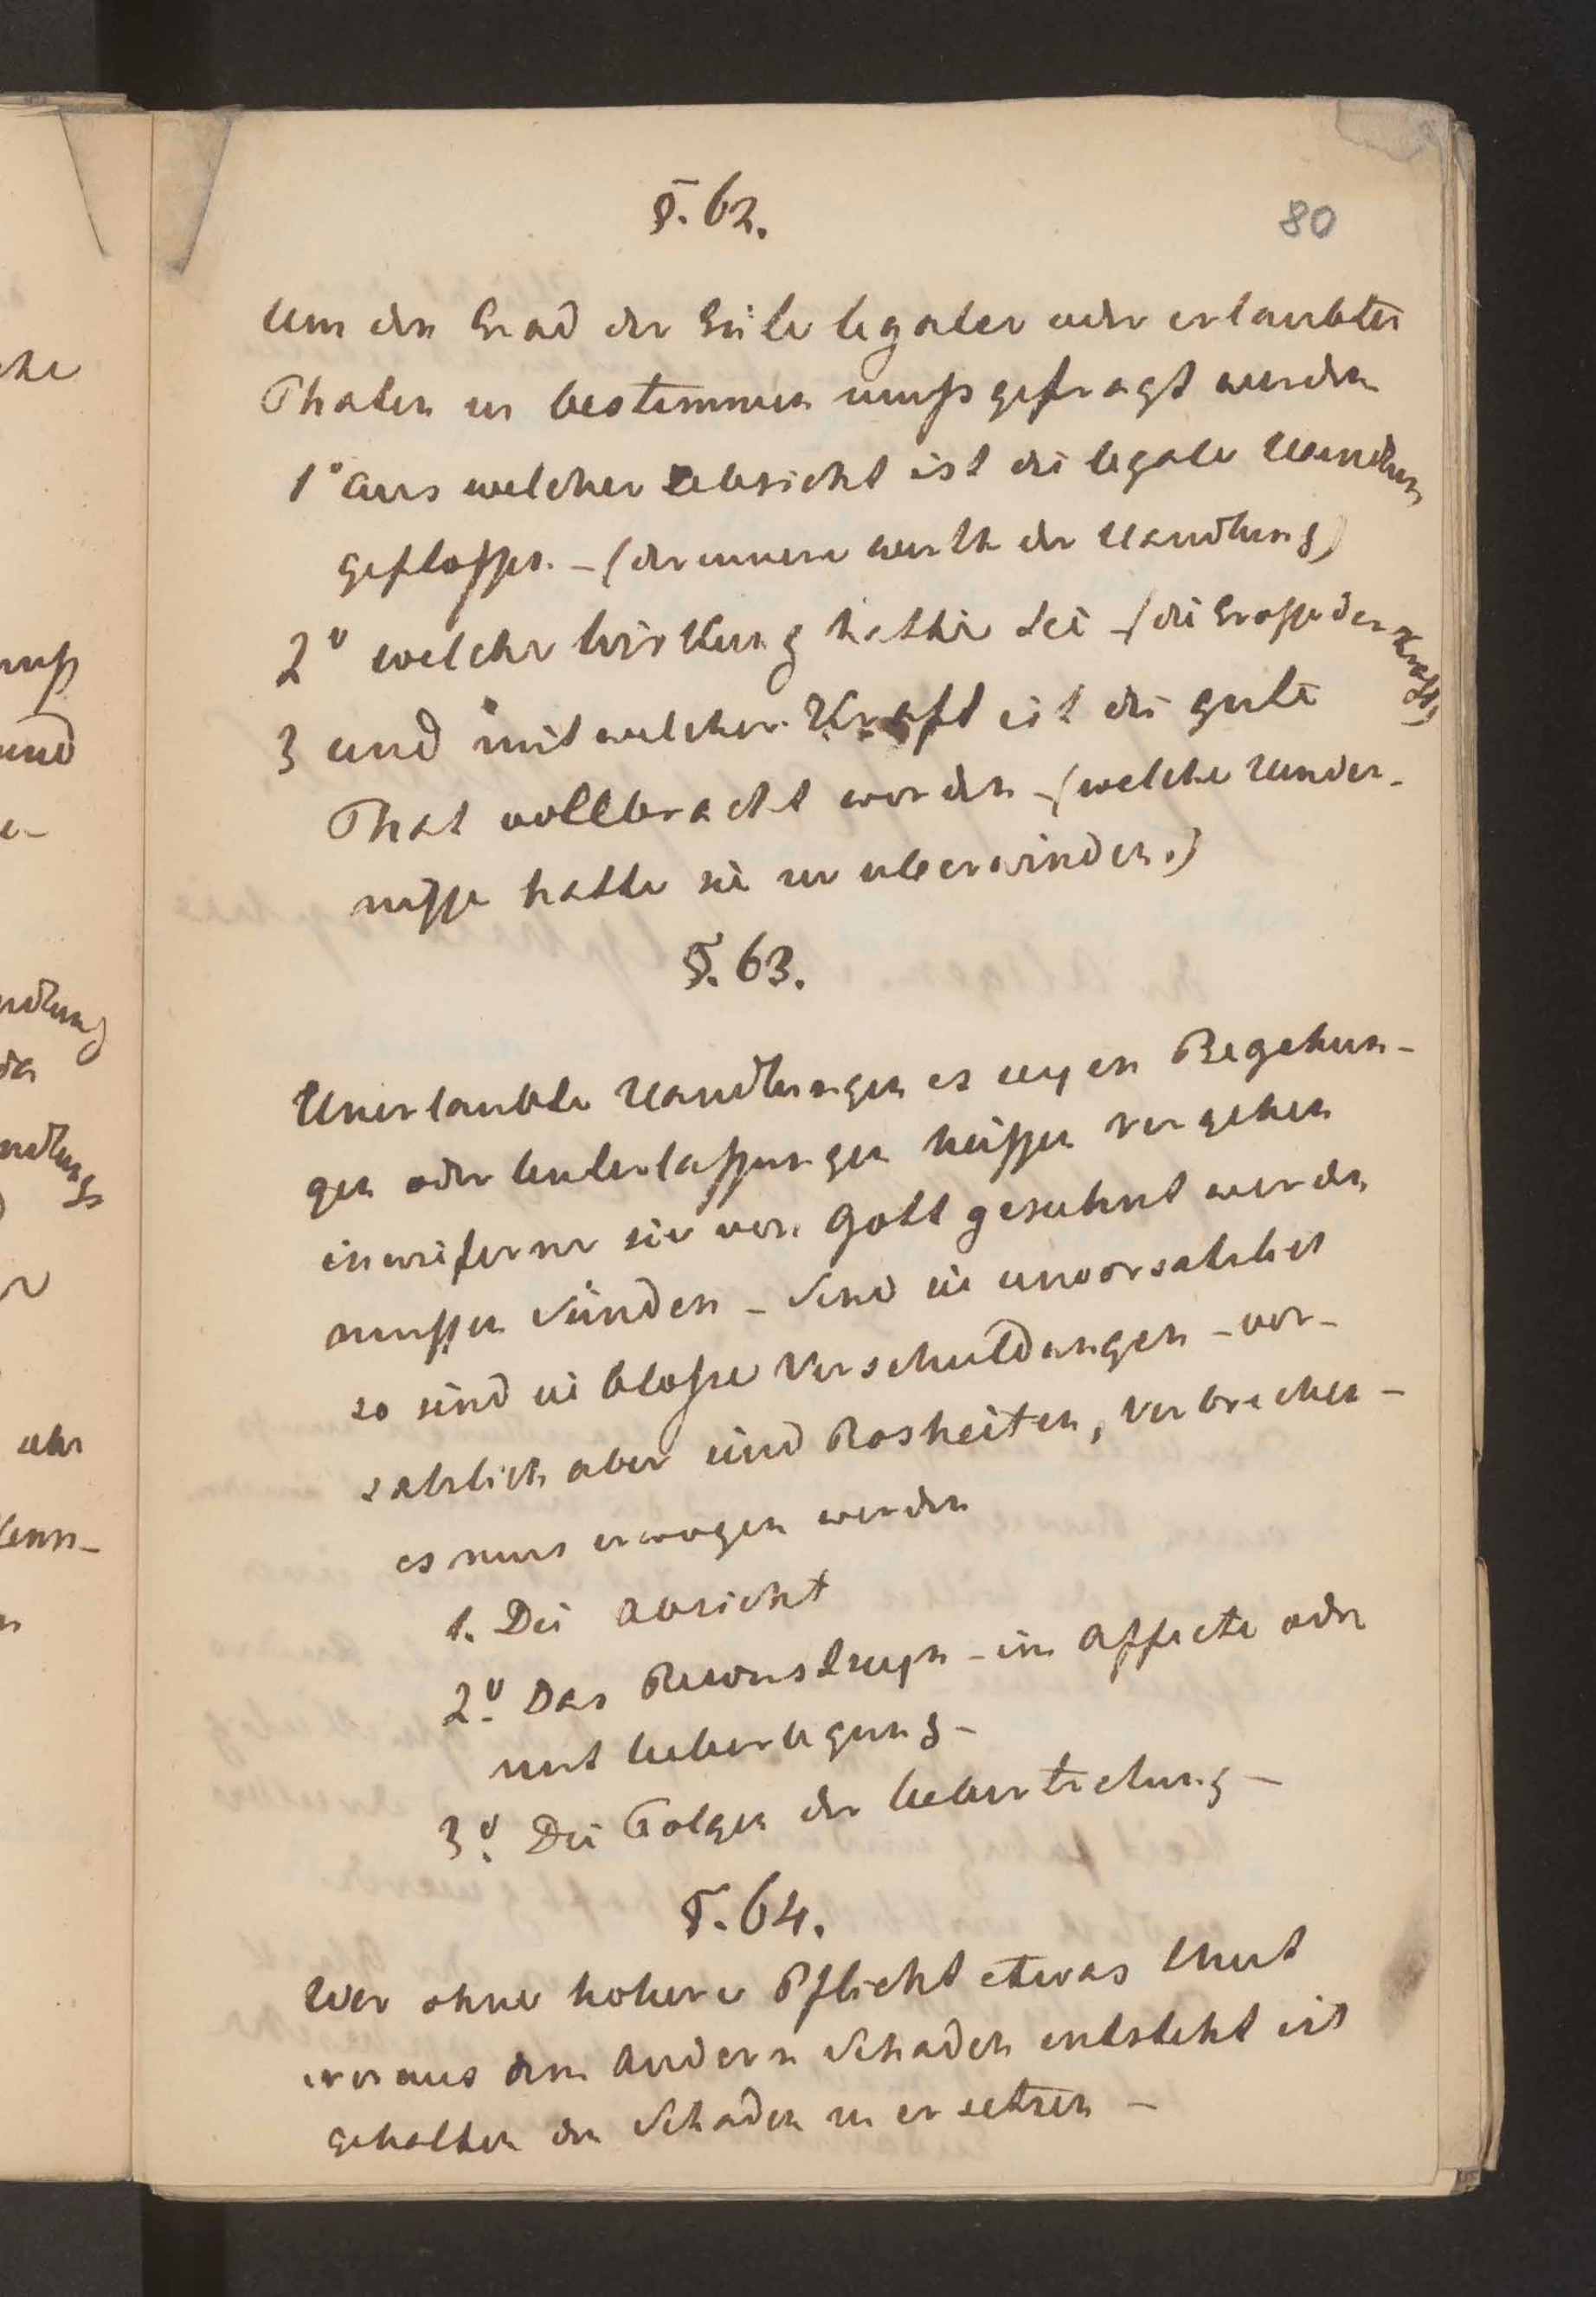 §. 62.
80
Um den Grad der Güte legaler oder erlaubter
Thaten zu bestimmen muß gefragt werden
1° aus welcher Absicht ist die legale Handlung
geflossen. – (der innere werth der Handlung)
2° welche Wirkung hatte sie – (die Grosse der Kraft)
3 und mit welcher Kraft ist die gute
That vollbracht worden – (welche Hinder-
nisse hatte sie zu uberwinden.)
§. 63.
Unerlaubte Handlungen es seyen Begehun-
gen oder Unterlassungen heissen vergehen
inwieferne sie von Gott gesuhnt werden
mussen Sünden – Sind sie unvorsatzlich
so sind sie blosse Verschuldungen – vor-
satzlich aber sind Bosheiten, Verbrechen –
es mus erwogen werden
1. Die Absicht
2° Das Bewustseyn – im Affecte oder
mit Ueberlegung –
3° Die Folgen der Uebertretung –
§. 64.
Wer ohne hohere Pflicht etwas thut
woraus dem Andern Schaden entsteht ist
gehalten den Schaden zu ersetzen –